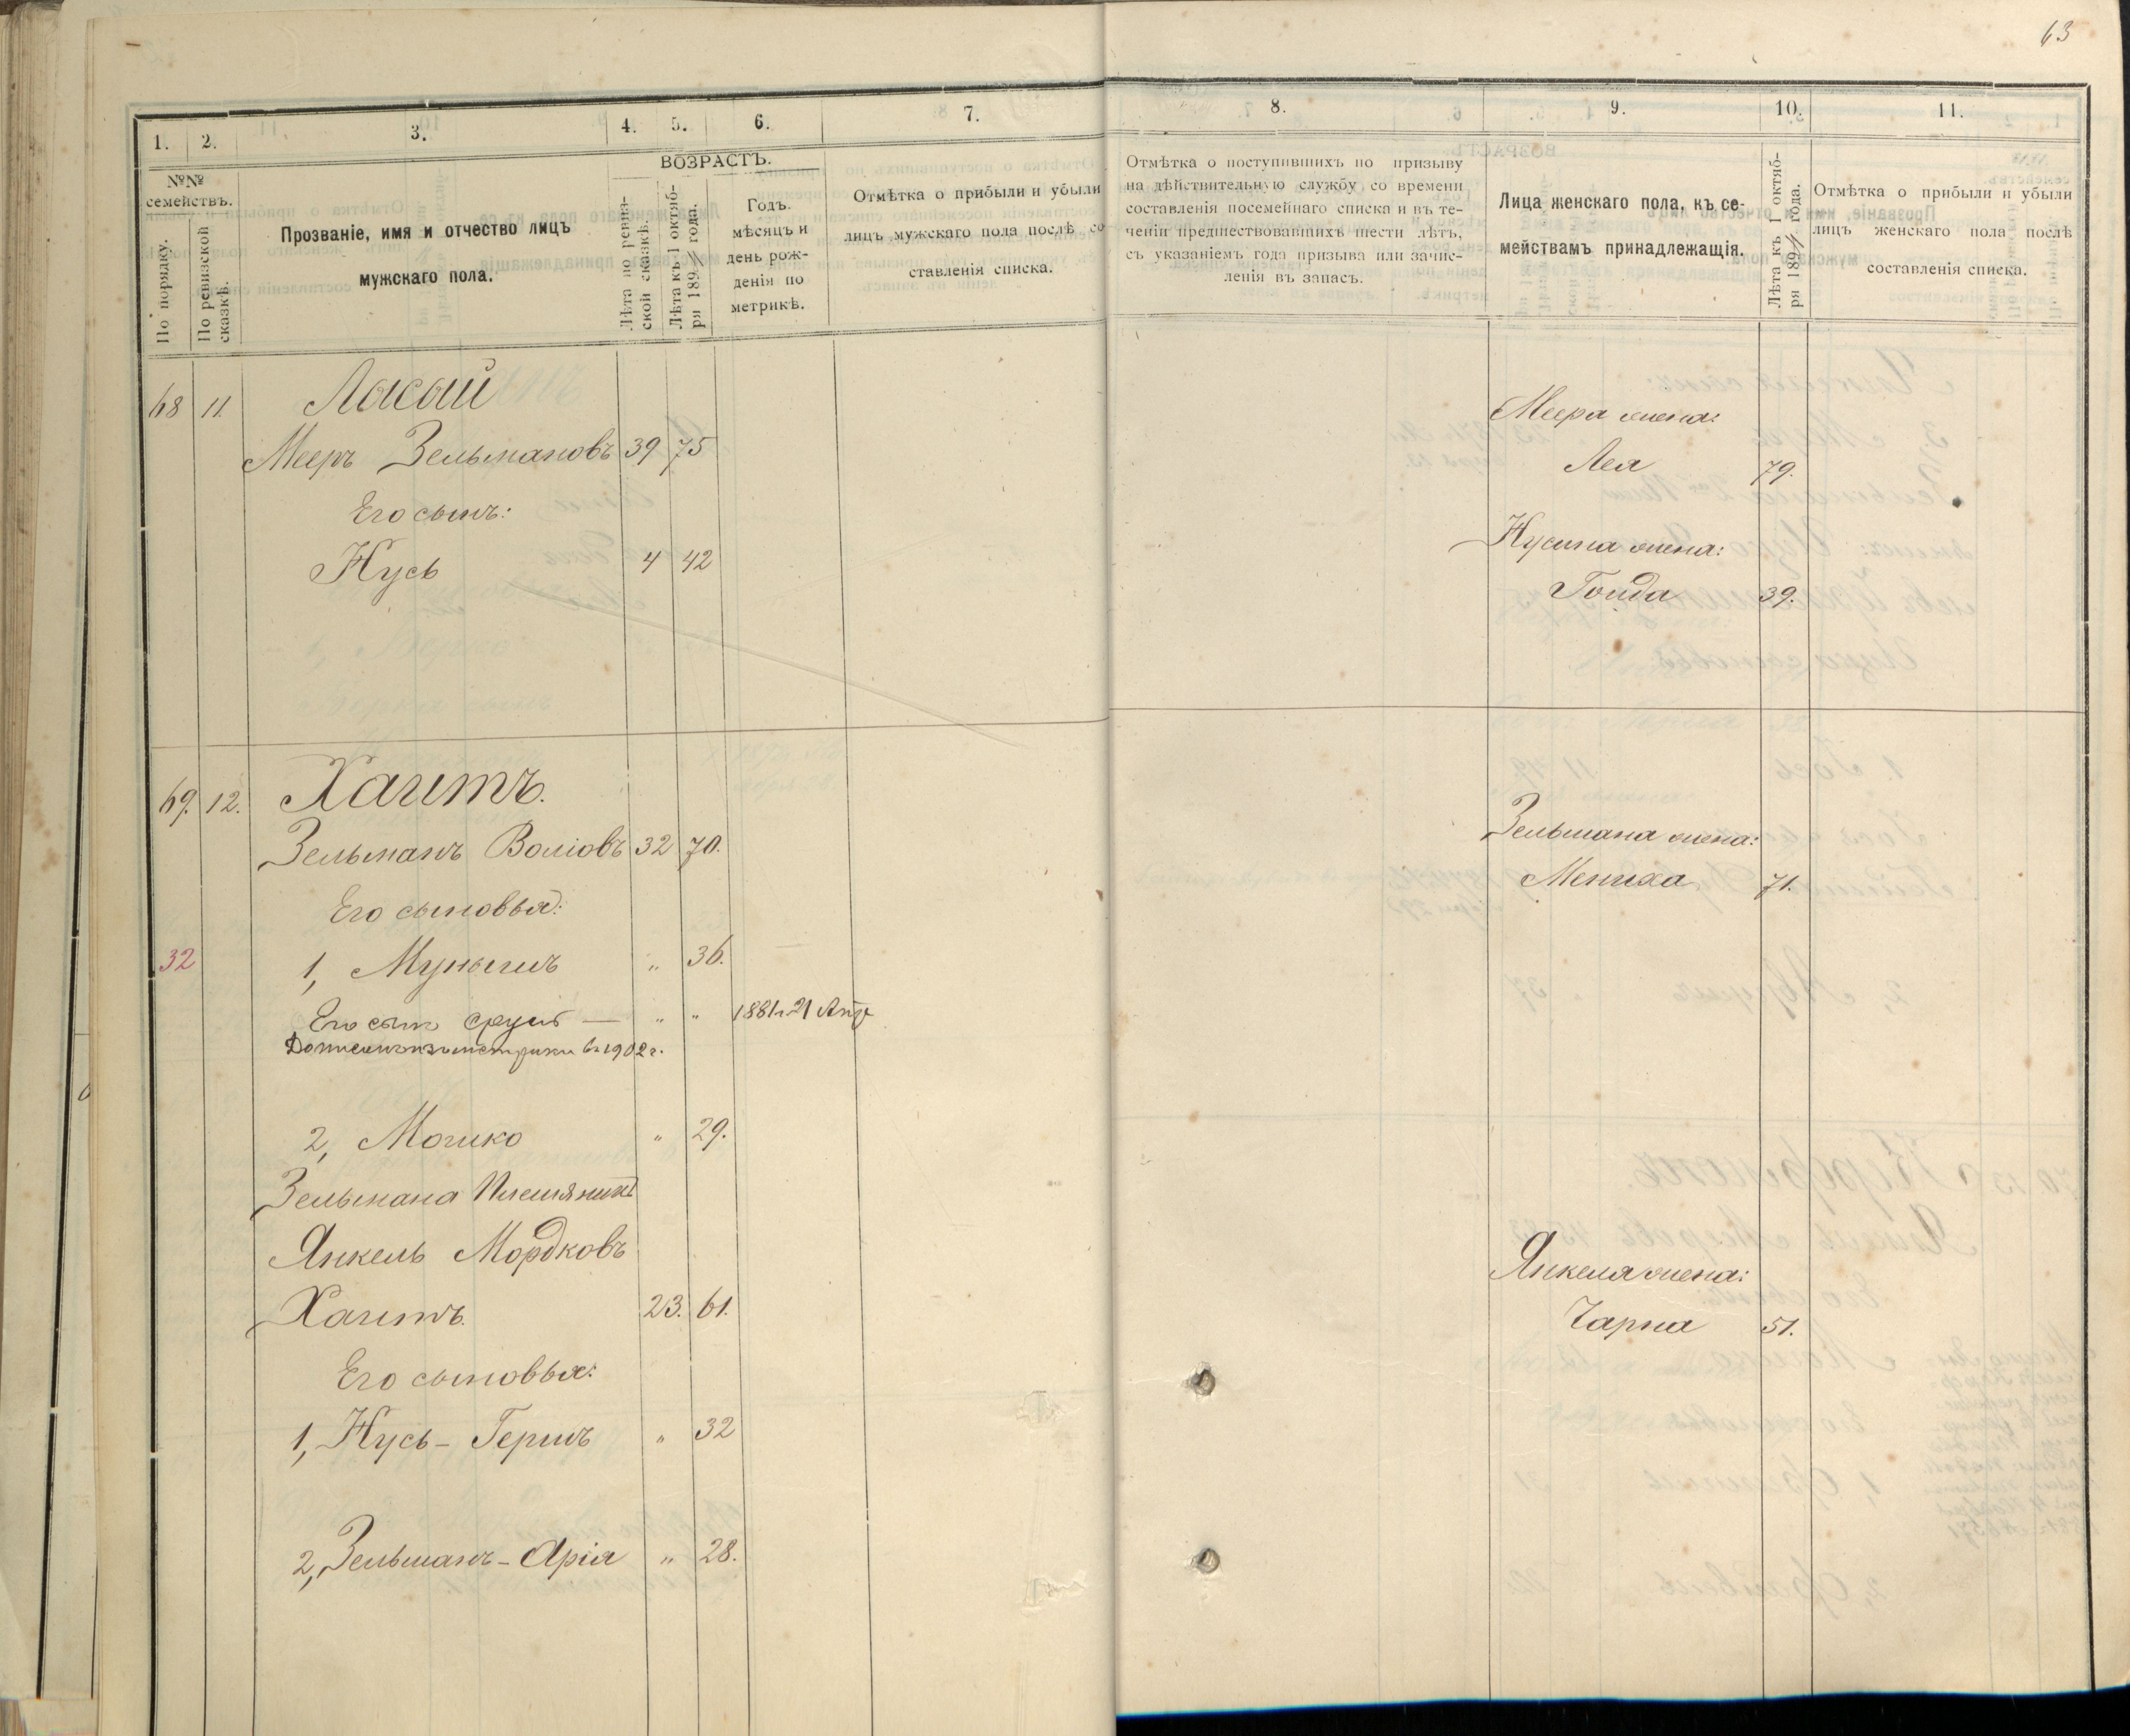 63
1. 2. 3. 4. 5. 6. 7. 8. 9. 10. 11.
№№ семействъ.
По порядку.
По ревизской сказкѣ.
Прозваніе, имя и отчество лицъ
мужскаго пола.
ВОЗРАСТЪ.
Лѣта по ревиз-
ской сказкѣ.
Лѣта къ 1 октяб-
ря 189 года.
Годъ.
мѣсяцъ и
день рож-
денія по
метрикѣ.
Отмѣтка о прибыли и убыли
лицъ мужскаго пола послѣ со
ставленія списка.
Отмѣтка о поступившихъ по призыву
на дѣйствительную службу со времени
составленія посемейнаго списка и въ те-
ченіи предшествовавшихъ шести лѣтъ,
съ указаніемъ года призыва или зачис-
ленія въ запасъ.
Лица женскаго пола, къ се-
мействамъ принадлежащія.
Лѣта къ 1 октяб-
ря 189 года.
Отмѣтка о прибыли и убыли
лицъ женскаго пола послѣ
составленія списка.
68 11. Ласый
Мееръ Зельмановъ 39 75
Его сынъ:
Нусь 4 42
Меера жена:
Лея 79.
Нусина жена:
Гольда 39.
69. 12. Хаитъ.
Зельманъ Воліовъ 32 70.
Его сыновья:
32 1, Мунышъ " 36.
Его сынъ Сруль — " " 1881 г. 21 Апр
Дописанъ изъ метрики въ 1902 г.
2, Мошко " 29.
Зельмана Племянникъ
Янкель Мордковъ
Хаитъ. 23. 61.
Его сыновья:
1, Нусь - Гершъ " 32
2, Зельманъ - Арія " 28.
Зельмана жена:
Мениха 71.
Янкеля жена:
Чарна 51.